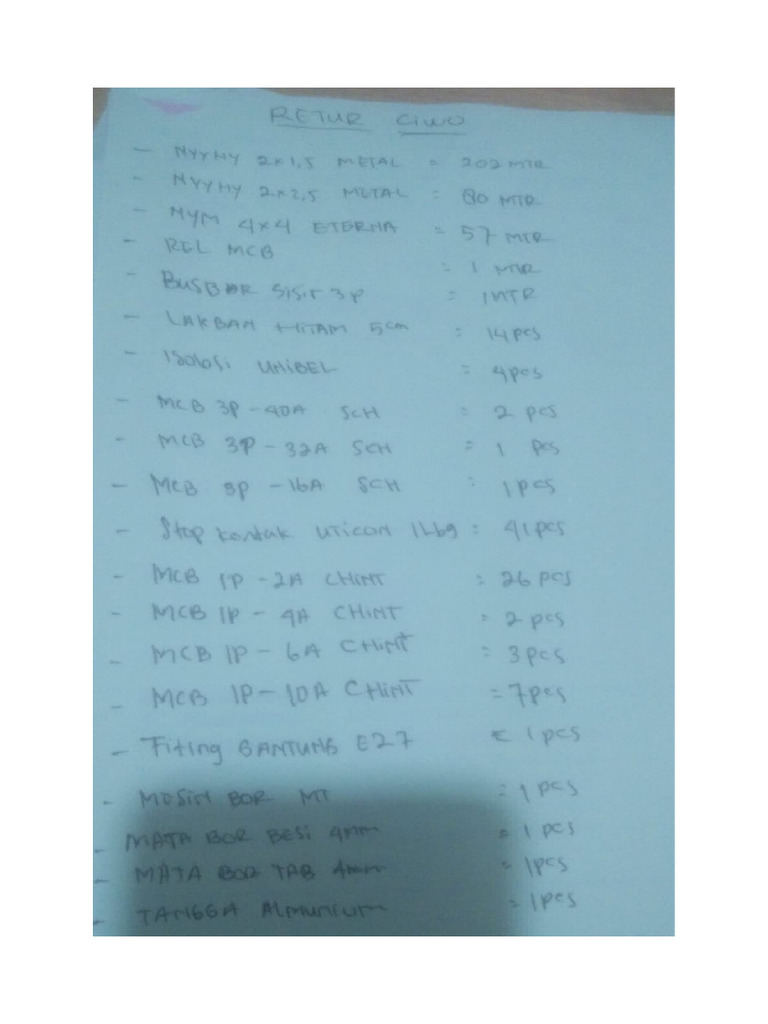 RETUR CIWO
- NYYHY 2x1,5 METAL = 202 MTR
- NYYHY 2x2,5 METAL : 80 MTR
- NYM 4x4 ETERNA = 57 MTR
- REL MCB : 1 MTR
- BUSBAR SISIR 3P = 1 MTR
- LAKBAN HITAM 5cm = 14 pcs
- Isolasi UNIBEL = 4 pcs
- MCB 3P - 40A SCH = 2 pcs
- MCB 3P - 32A SCH = 1 pcs
- MCB 3P - 16A SCH : 1 pcs
- Stop kontak UTICON 1Lbg : 41 pcs
- MCB 1P - 2A CHINT = 26 pcs
- MCB 1P - 4A CHINT = 2 pcs
- MCB 1P - 6A CHINT = 3 pcs
- MCB 1P - 10A CHINT = 7 pcs
- Fiting GANTUNG E27 = 1 pcs
- MESIN BOR MT = 1 pcs
- MATA BOR BESI 4mm = 1 pcs
- MATA BOR TAB 4mm = 1 pcs
- TANGGA Almunium = 1 pcs